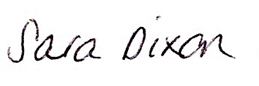 Sara Dixon